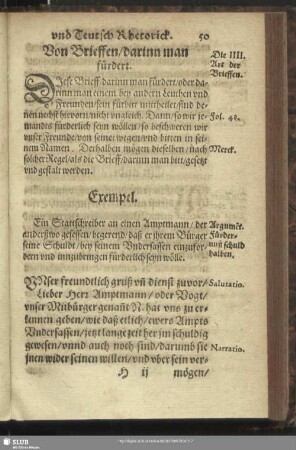 vnd Teutsch Rhetorick. 50
Von Brieffen/darinn man
fürdert.
Die IIII.
Art der
Brieffen.
Diese Brieff darinn man fürdert/oder da-
rinn man einem bey andern Leuthen vnd
Freunden/sein fürbitt mittheilet/sind de-
nen nehst hievorn nicht vngleich. Dann/so wir je-
mandts fürderlich sein wöllen/so beschweren wir
vnser Freunde/von seinet wegen/vnd bitten in sei-
nem Namen. Derhalben mögen dieselben/nach
solcher Regel/als die Brieff/darinn man bitt/gesetzt
vnd gestalt werden.
Fol. 48.
Merck.
Exempel.
Ein Stattschreiber an einen Amptmann/der
anderswo gesessen/begerend/daß er ihrem Bürger
seine Schuldt/bey seinem Vndersassen einzufor-
dern vnd innzubringen fürderlich seyn wölle.
Argumēt.
Fürder-
nuß schuld
halben.
Vnser freundtlich gruß vñ dienst zuvor/
Lieber Herr Amptmann/oder Vogt/
vnser Mitbürger genañt N. hat vns zu er-
kennen geben/wie daß etlich/ewers Ampts
Vndersassen/jetzt lange zeit her jm schuldig
gewesen/vnnd auch noch sind/darumb sie
jnen wider seinen willen/vnd vber sein ver-
Salutatio.
Narratio.
H ij mögen/
SLUB